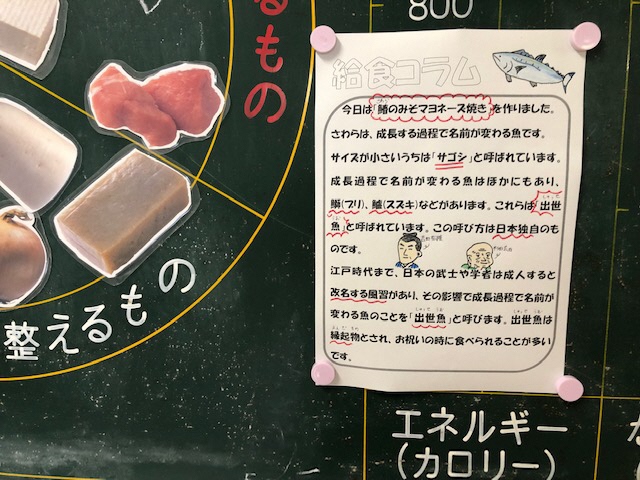 800
るもの
給食コラム
今日は「鰆のみそマヨネーズ焼き」を作りました。
さわらは、成長する過程で名前が変わる魚です。
サイズが小さいうちは「サゴシ」と呼ばれています。
成長過程で名前が変わる魚はほかにもあり、
鰤(ブリ)、鱸(スズキ)などがあります。これらは「出世
魚」と呼ばれています。この呼び方は日本独自のも
のです。
江戸時代まで、日本の武士や学者は成人すると
改名する風習があり、その影響で成長過程で名前が
変わる魚のことを「出世魚」と呼びます。出世魚は
縁起物とされ、お祝いの時に食べられることが多い
です。
整えるもの
エネルギー
(カロリー)